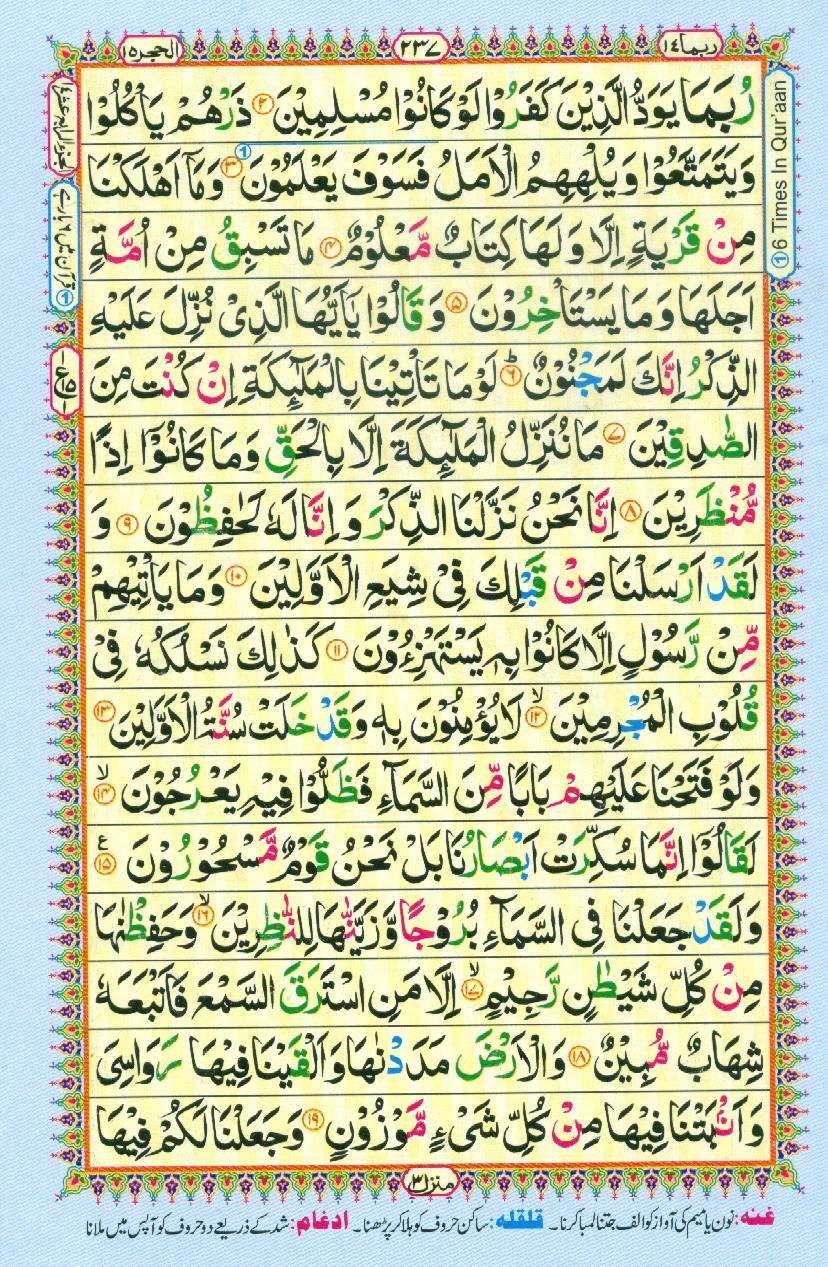 ربما ١٤
٢٣٧
الحجر ١٥
رُبَمَا يَوَدُّ الَّذِيْنَ كَفَرُوْا لَوْ كَانُوْا مُسْلِمِيْنَ ٢ ذَرْهُمْ يَاْكُلُوْا
وَيَتَمَتَّعُوْا وَيُلْهِهِمُ الْاَمَلُ فَسَوْفَ يَعْلَمُوْنَ ٣ وَمَاۤ اَهْلَكْنَا
مِنْ قَرْيَةٍ اِلَّا وَلَهَا كِتَابٌ مَّعْلُوْمٌ ٤ مَا تَسْبِقُ مِنْ اُمَّةٍ
اَجَلَهَا وَمَا يَسْتَاْخِرُوْنَ ٥ وَقَالُوْا يٰۤاَيُّهَا الَّذِيْ نُزِّلَ عَلَيْهِ
الذِّكْرُ اِنَّكَ لَمَجْنُوْنٌ ٦ؕ لَوْ مَا تَاْتِيْنَا بِالْمَلٰٓئِكَةِ اِنْ كُنْتَ مِنَ
الصّٰدِقِيْنَ ٧ مَا نُنَزِّلُ الْمَلٰٓئِكَةَ اِلَّا بِالْحَقِّ وَمَا كَانُوْۤا اِذًا
مُّنْظَرِيْنَ ٨ اِنَّا نَحْنُ نَزَّلْنَا الذِّكْرَ وَاِنَّا لَهٗ لَحٰفِظُوْنَ ٩ وَ
لَقَدْ اَرْسَلْنَا مِنْ قَبْلِكَ فِيْ شِيَعِ الْاَوَّلِيْنَ ١٠ وَمَا يَاْتِيْهِمْ
مِّنْ رَّسُوْلٍ اِلَّا كَانُوْا بِهٖ يَسْتَهْزِءُوْنَ ١١ كَذٰلِكَ نَسْلُكُهٗ فِيْ
قُلُوْبِ الْمُجْرِمِيْنَ ١٢ۙ لَا يُؤْمِنُوْنَ بِهٖ وَقَدْ خَلَتْ سُنَّةُ الْاَوَّلِيْنَ ١٣
وَلَوْ فَتَحْنَا عَلَيْهِمْ بَابًا مِّنَ السَّمَآءِ فَظَلُّوْا فِيْهِ يَعْرُجُوْنَ ١٤ۙ
لَقَالُوْۤا اِنَّمَا سُكِّرَتْ اَبْصَارُنَا بَلْ نَحْنُ قَوْمٌ مَّسْحُوْرُوْنَ ١٥ ع
وَلَقَدْ جَعَلْنَا فِي السَّمَآءِ بُرُوْجًا وَّزَيَّنّٰهَا لِلنّٰظِرِيْنَ ١٦ۙ وَحَفِظْنٰهَا
مِنْ كُلِّ شَيْطٰنٍ رَّجِيْمٍ ١٧ۙ اِلَّا مَنِ اسْتَرَقَ السَّمْعَ فَاَتْبَعَهٗ
شِهَابٌ مُّبِيْنٌ ١٨ وَالْاَرْضَ مَدَدْنٰهَا وَاَلْقَيْنَا فِيْهَا رَوَاسِيَ
وَاَنْۢبَتْنَا فِيْهَا مِنْ كُلِّ شَيْءٍ مَّوْزُوْنٍ ١٩ وَجَعَلْنَا لَكُمْ فِيْهَا
① 6 Times In Qur'aan
قرآن میں ٦ بار ہے ①
منزل ٣
غنہ: نون یا میم کی آواز کو الف جتنا لمبا کرنا۔ قلقلہ: ساکن حروف کو ہلا کر پڑھنا۔ ادغام: شد کے ذریعے دو حروف کو آپس میں ملانا